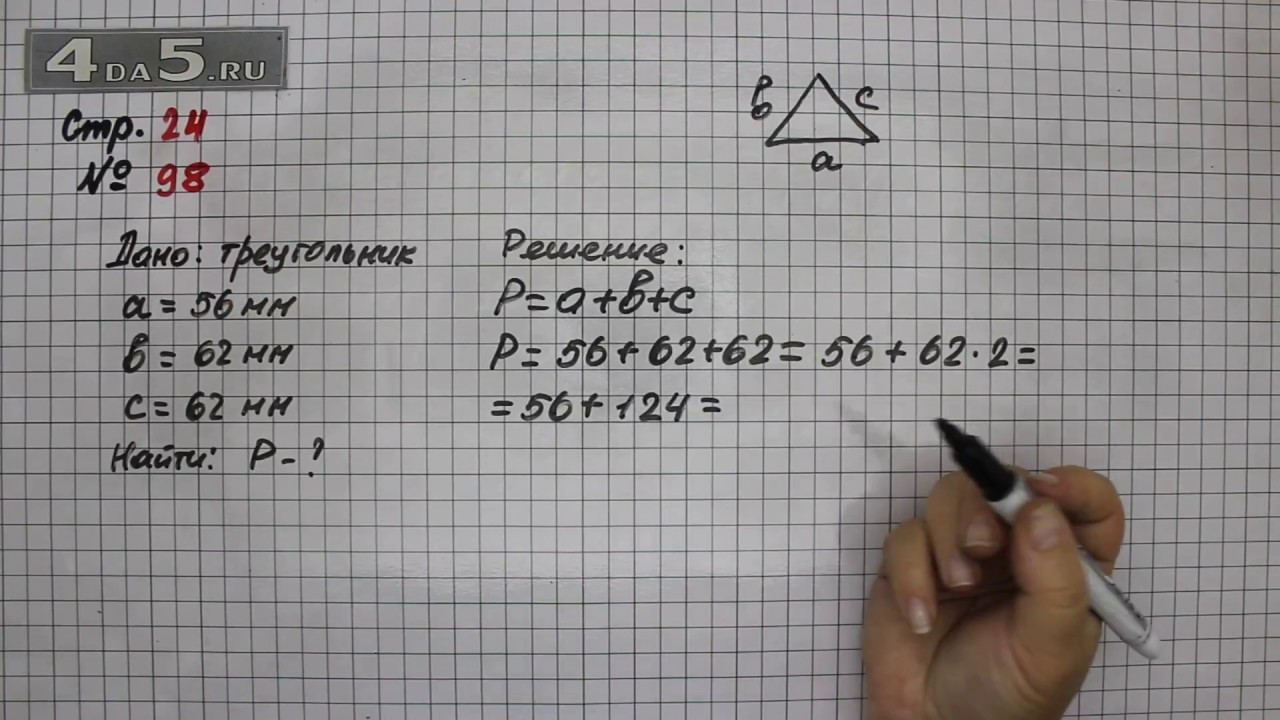 4DA5.RU
Стр. 24
№ 98
в
с
а
Дано: треугольник
а = 56 мм
в = 62 мм
с = 62 мм
Найти: Р - ?
Решение:
Р = а + в + с
Р = 56 + 62 + 62 = 56 + 62 · 2 =
= 56 + 124 =